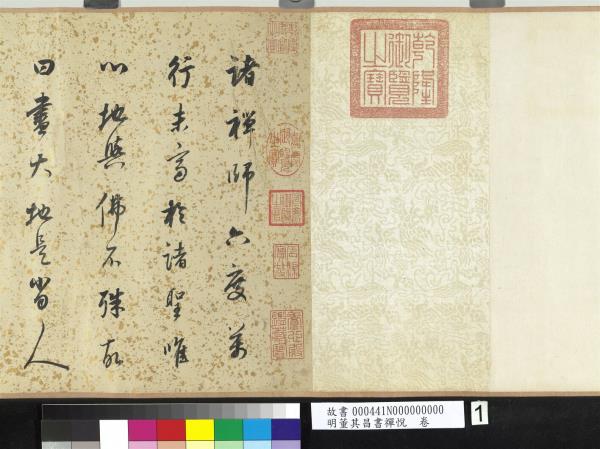 乾隆
御覽
之寶
諸禪師六度萬
行未高於諸聖唯
心地與佛不殊故
曰盡大地是當人
故書 000441N000000000
明董其昌書禪悅 卷
1